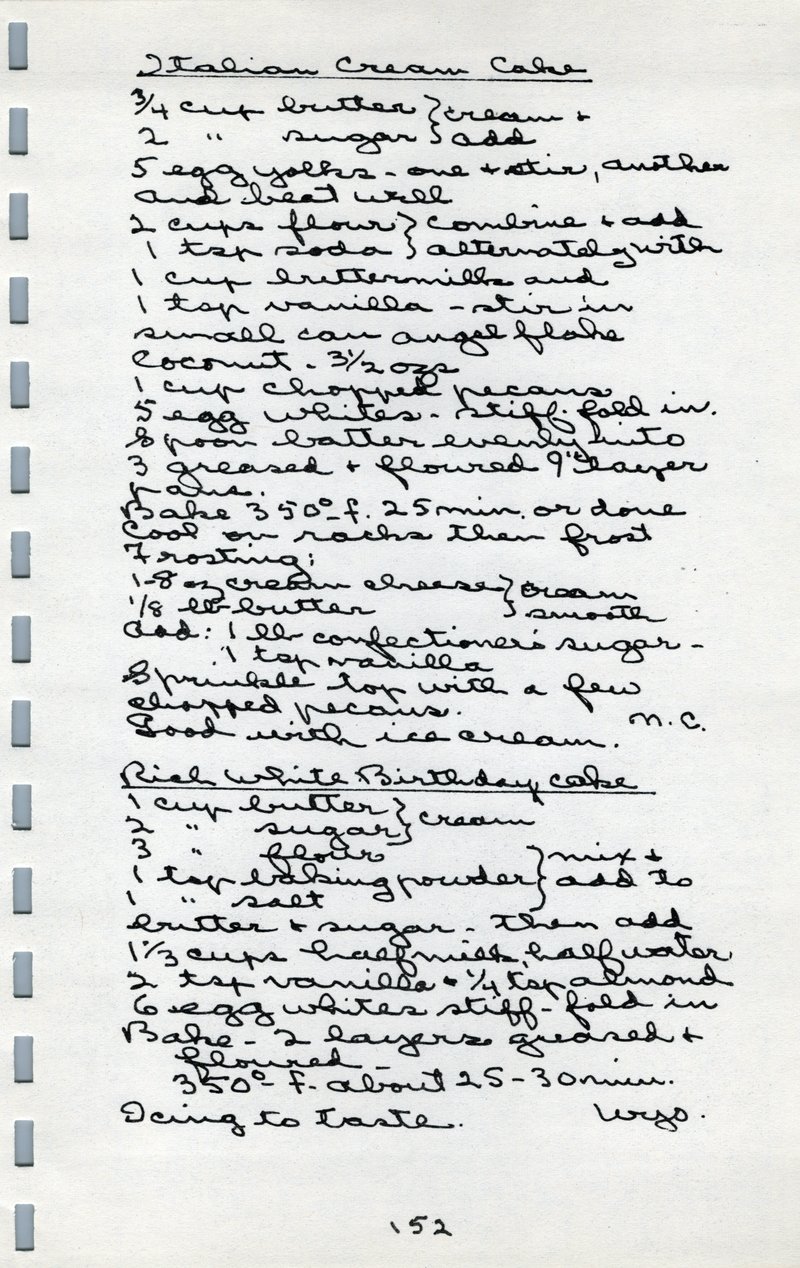 Italian Cream Cake
3/4 cup butter } cream &
2 " sugar } add
5 egg yolks - one & stir, another
and beat well
2 cups flour } combine & add
1 tsp soda } alternately with
1 cup buttermilk and
1 tsp vanilla - stir in
small can angel flake
coconut - 3 1/2 ozs
1 cup chopped pecans
5 egg whites - stiff - fold in.
Spoon batter evenly into
3 greased & floured 9" layer
pans.
Bake 350° f. 25 min. or done
Cool on racks then frost
Frosting:
1-8 oz cream cheese } cream
1/8 lb butter } smooth
Add: 1 lb confectioner's sugar -
1 tsp vanilla
Sprinkle top with a few
chopped pecans.
Good with ice cream. N.C.
Rich White Birthday Cake
1 cup butter } cream
2 " sugar }
3 " flour } mix &
1 tsp baking powder } add to
1 " salt }
butter & sugar - then add
1 1/3 cups half milk, half water
2 tsp vanilla & 1/4 tsp almond
6 egg whites stiff - fold in
Bake - 2 layers greased &
floured -
350° f. about 25-30 min.
Icing to taste. Wyo.
152